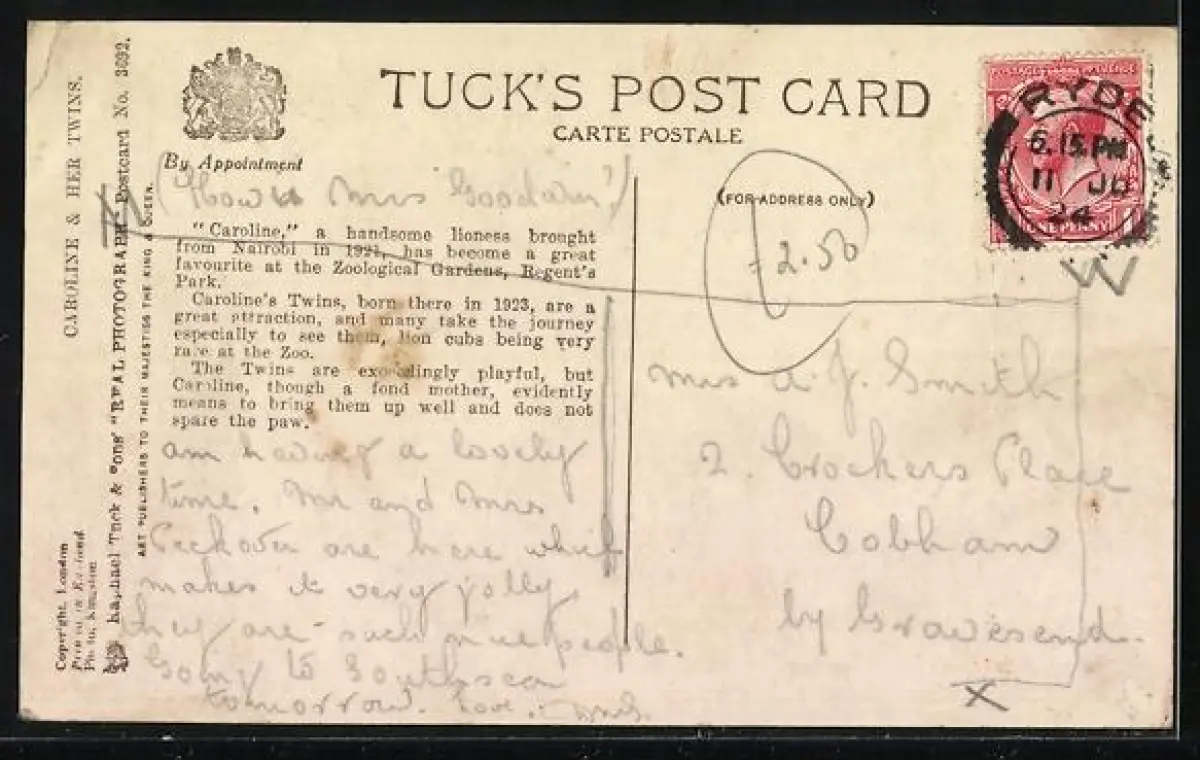 TUCK'S POST CARD
CARTE POSTALE
By Appointment
(FOR ADDRESS ONLY)
POSTAGE REVENUE
ONE PENNY
RYDE
6.15 PM
11 JU
24
CAROLINE & HER TWINS.
Raphael Tuck & Sons' "REAL PHOTOGRAPH" Postcard No. 3692.
ART PUBLISHERS TO THEIR MAJESTIES THE KING & QUEEN.
Copyright. London
Printed in England
Photo, Kingston
(How is Mrs Goodwin?)
"Caroline," a handsome lioness brought
from Nairobi in 1921, has become a great
favourite at the Zoological Gardens, Regent's
Park.
Caroline's Twins, born there in 1923, are a
great attraction, and many take the journey
especially to see them, lion cubs being very
rare at the Zoo.
The Twins are exceedingly playful, but
Caroline, though a fond mother, evidently
means to bring them up well and does not
spare the paw.
am having a lovely
time. Mr and Mrs
Peckover are here which
makes it very jolly,
they are such nice people.
Going to Southsea
tomorrow. Love.
2.50
Mrs A. J. Smith
2. Crockers Place
Cobham
by Gravesend.
X